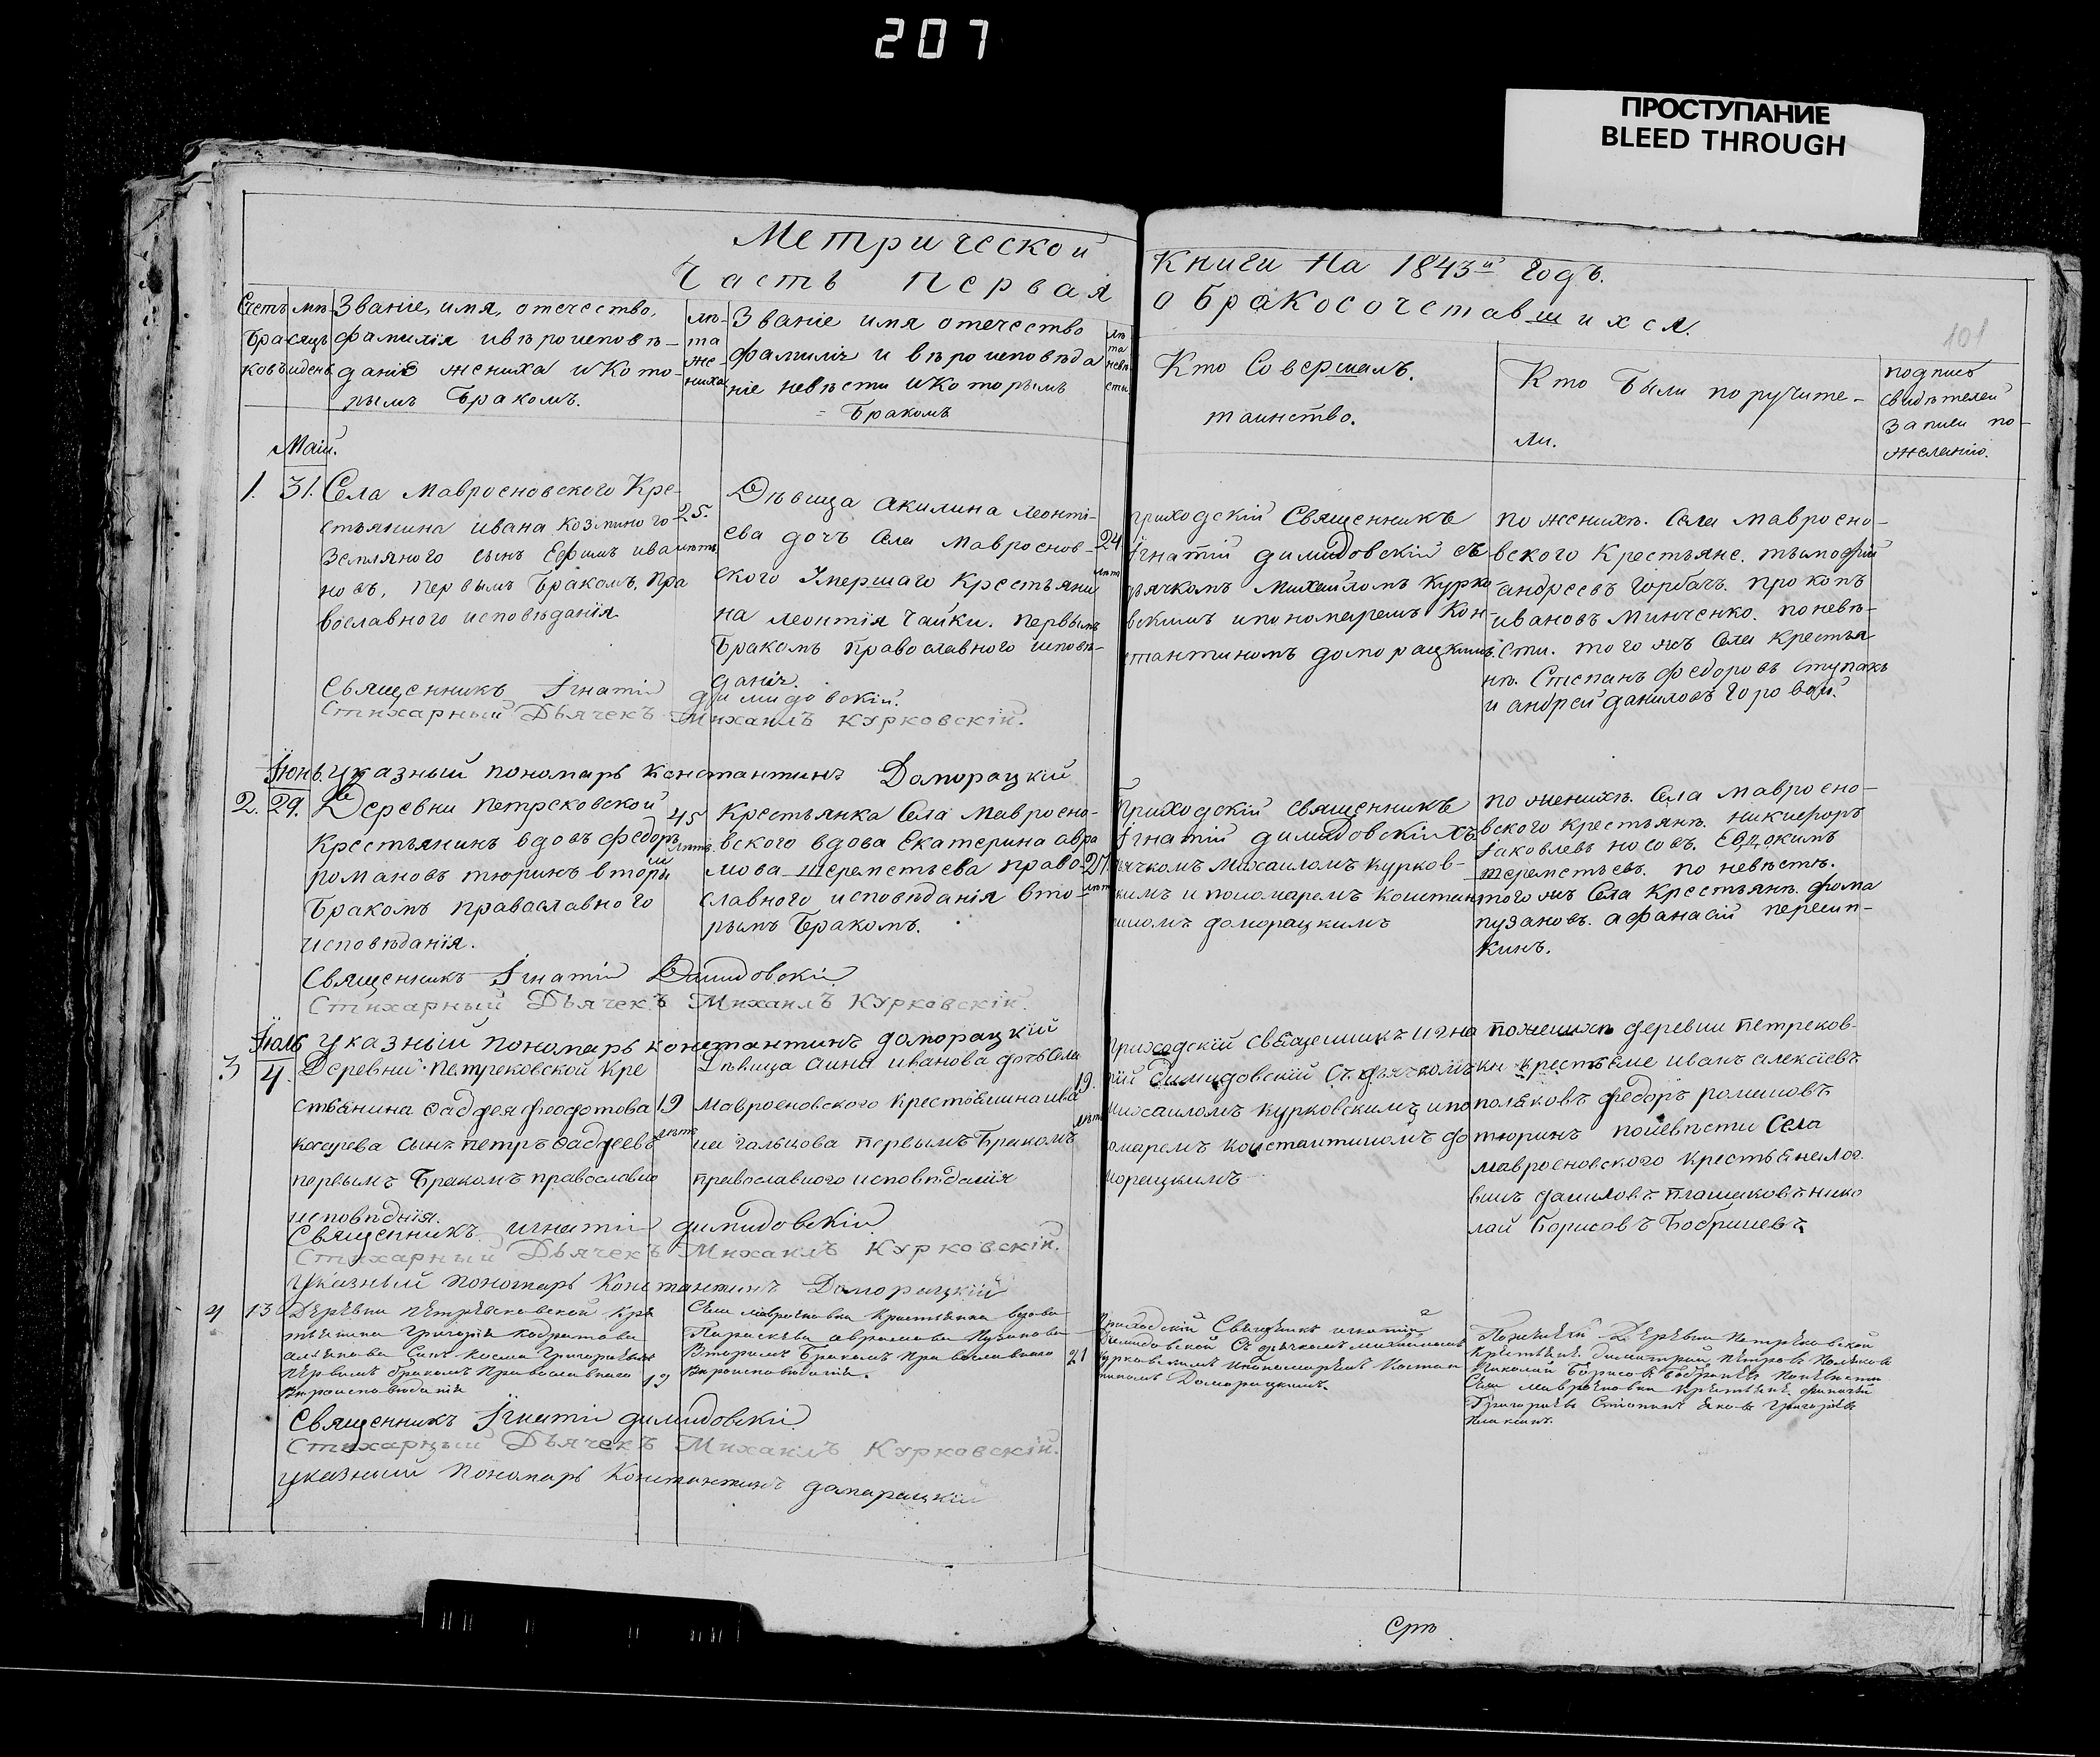 207
ПРОСТУПАНИЕ
BLEED THROUGH
101
Метрической
Часть первая
Книги на 1843й Годъ.
о бракосочетавшихся.
Счетъ
Бра
ковъ
мѣ-
сяцъ
идень
Званіе, имя, отечество,
фамилія ивѣроисповѣ-
даніе жениха ико то-
рымъ Бракомъ.
лѣ-
та
же-
ниха
Званіе имя отечество
фамилія и вѣроисповѣда
ніе невѣсти икоторымъ
Бракомъ
лѣ
та
невѣ
сти
Кто Совершалъ.
таинство.
Кто Были поручите-
ли.
подпись
свидѣтелей
записи по-
желанію.
Маій.
1. 31.
Села Мавроеновского Кре-
стьянина ивана козминого
Земляного сынъ Ефимъ ива
новъ, первымъ Бракомъ, пра
вославного исповѣданія
25.
лѣтъ
Дѣвица Акилина леонті-
ева дочъ Села Мавроенов-
ского Умершаго Крестьяни
на леонтія Чайки. первымъ
Бракомъ православного исповѣ-
данія.
24
лѣт
приходскій Священникъ
Ігнатій димидовскій съ
дьячкомъ Михаиломъ Курко
вскимъ ипономаремъ Кон-
стантиномъ доморацкимъ.
по женихѣ. Села мавроено-
вского Крестьяне. тымофій
андреевъ Горбачъ. прокопъ
ивановъ Минченко. поневѣ-
сти. того жъ Села Крестья
нѣ. Степанъ федоровъ ступакъ
и андрей даниловъ Горовой.
Священникъ Ігнатій димидовскій.
Стихарный Дьячекъ Михаилъ Курковскій.
Іюнь. Указный пономарь константинъ Доморацкій
2. 29.
Деревни петрековской
Крестьянинъ вдовъ федоръ
романовъ тюринъ вторым
Бракомъ православного
исповѣданія.
45
лѣтъ.
Крестьянка Села Мавроено-
вского вдова Екатерина авра
мова Шереметьева право-
славного исповѣданія вто-
рымъ Бракомъ.
27
лѣт
Приходскій священникъ
Ігнатій димидовскій съ
дьячкомъ Михаиломъ курков-
скимъ и пономаремъ констан
тиномъ доморацкимъ
по женихѣ. Села мавроено-
вского крестьянѣ. никифоръ
Іаковлевъ носовъ. Евдокимъ
шереметьевъ. по невѣстѣ.
того жъ Села Крестьянѣ. фома
пузановъ. афанасій пересип-
кинъ.
Священникъ Ігнатій Димидовскій
Стихарный Дьячекъ Михаилъ Курковскій.
Іюль Указный пономарь константинъ доморацкій
3 4.
Деревни петрековской кре
стьянина фаддея феофотова
косарева сынъ петръ фаддеевъ
первымъ Бракомъ православно
исповѣднія.
19
лѣтъ
Дѣвица анна иванова дочь Села
Мавроеновского крестьянина ива
на Гальцова первымъ Бракомъ
православного исповѣданія
19.
лѣт
приходскій священникъ Игна
тій Димидовскій съ дьячкомъ
михаиломъ курковскимъ ипо
номаремъ константиномъ до
морацкимъ
поженихѣ деревни петреков-
ки крестьяне иванъ алексіевъ
поляковъ федоръ романовъ
тюринъ поневѣсти Села
мавроеновского крестьяне лог
винъ даниловъ плашаковъ нико
лай Борисовъ Бобришевъ
Священникъ игнатій димидовскій
Стихарный Дьячекъ Михаилъ Курковскій.
Указный пономарь Константинъ Доморацкій
4 13
Деревни петрековской кре
стьянина Григорія кодратова
Синъ Косма Григориевъ
первымъ браком Православнаго
Вѣроисповѣданія
19
Села мавроеновки Крестьянка вдова
Параскева аврамова Пузанова
Вторимъ Бракомъ Православнаго
Вѣроисповѣданія.
21
Приходскій Священикъ игнатій
Демидовской Съ дячкомъ михаиломъ
Курковскимъ ипономаремъ Констан
тиномъ Доморацкимъ.
Поженихѣ Деревни петрековской
Крестьяне. Димитрій Петровъ Поляковъ
Николай Борисовъ Бобришевъ Поневѣсти
Села мавроеновки Крестьяне.
Григориевъ Яковъ Григориевъ
Священникъ Ігнатій димидовскій
Стихарный Дьячекъ Михаилъ Курковскій.
указный пономарь Константинъ дамарацкій